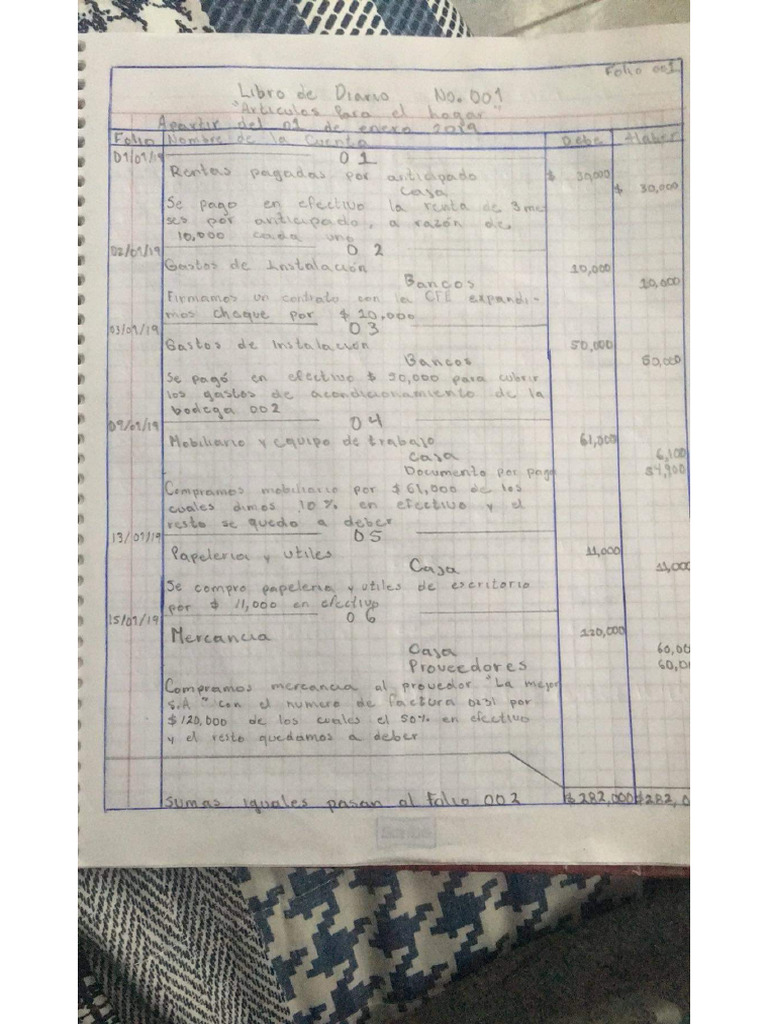 Folio 001
Libro de Diario No. 001
"Articulos Para el hogar"
Apartir del 01 de enero 2019
Folio Nombre de la Cuenta Debe Haber
01/01/19 01
Rentas pagadas por anticipado $ 30,000
Caja $ 30,000
Se pago en efectivo la renta de 3 me
ses por anticipado, a razón de
10,000 cada uno
02/01/19 02
Gastos de Instalación 20,000
Bancos 20,000
Firmamos un contrato con la CFE expandi-
mos cheque por $ 20,000
03/01/19 03
Gastos de Instalación 50,000
Bancos 50,000
Se pagó en efectivo $ 50,000 para cubrir
los gastos de acondicionamiento de la
bodega 002
09/01/19 04
Mobiliario y equipo de trabajo 61,000
Caja 6,100
Documento por paga 54,900
Compramos mobiliario por $ 61,000 de los
cuales dimos 10% en efectivo y el
resto se quedo a deber
13/01/19 05
Papeleria y utiles 11,000
Caja 11,000
Se compro papeleria y utiles de escritorio
por $ 11,000 en efectivo
15/01/19 06
Mercancia 120,000
Caja 60,00
Proveedores 60,0
Compramos mercancia al provedor "La mejor
S.A" con el numero de factura 0231 por
$ 120,000 de los cuales el 50% en efectivo
y el resto quedamos a deber
Sumas iguales pasan al Folio 002 $ 282,000 $ 282,0